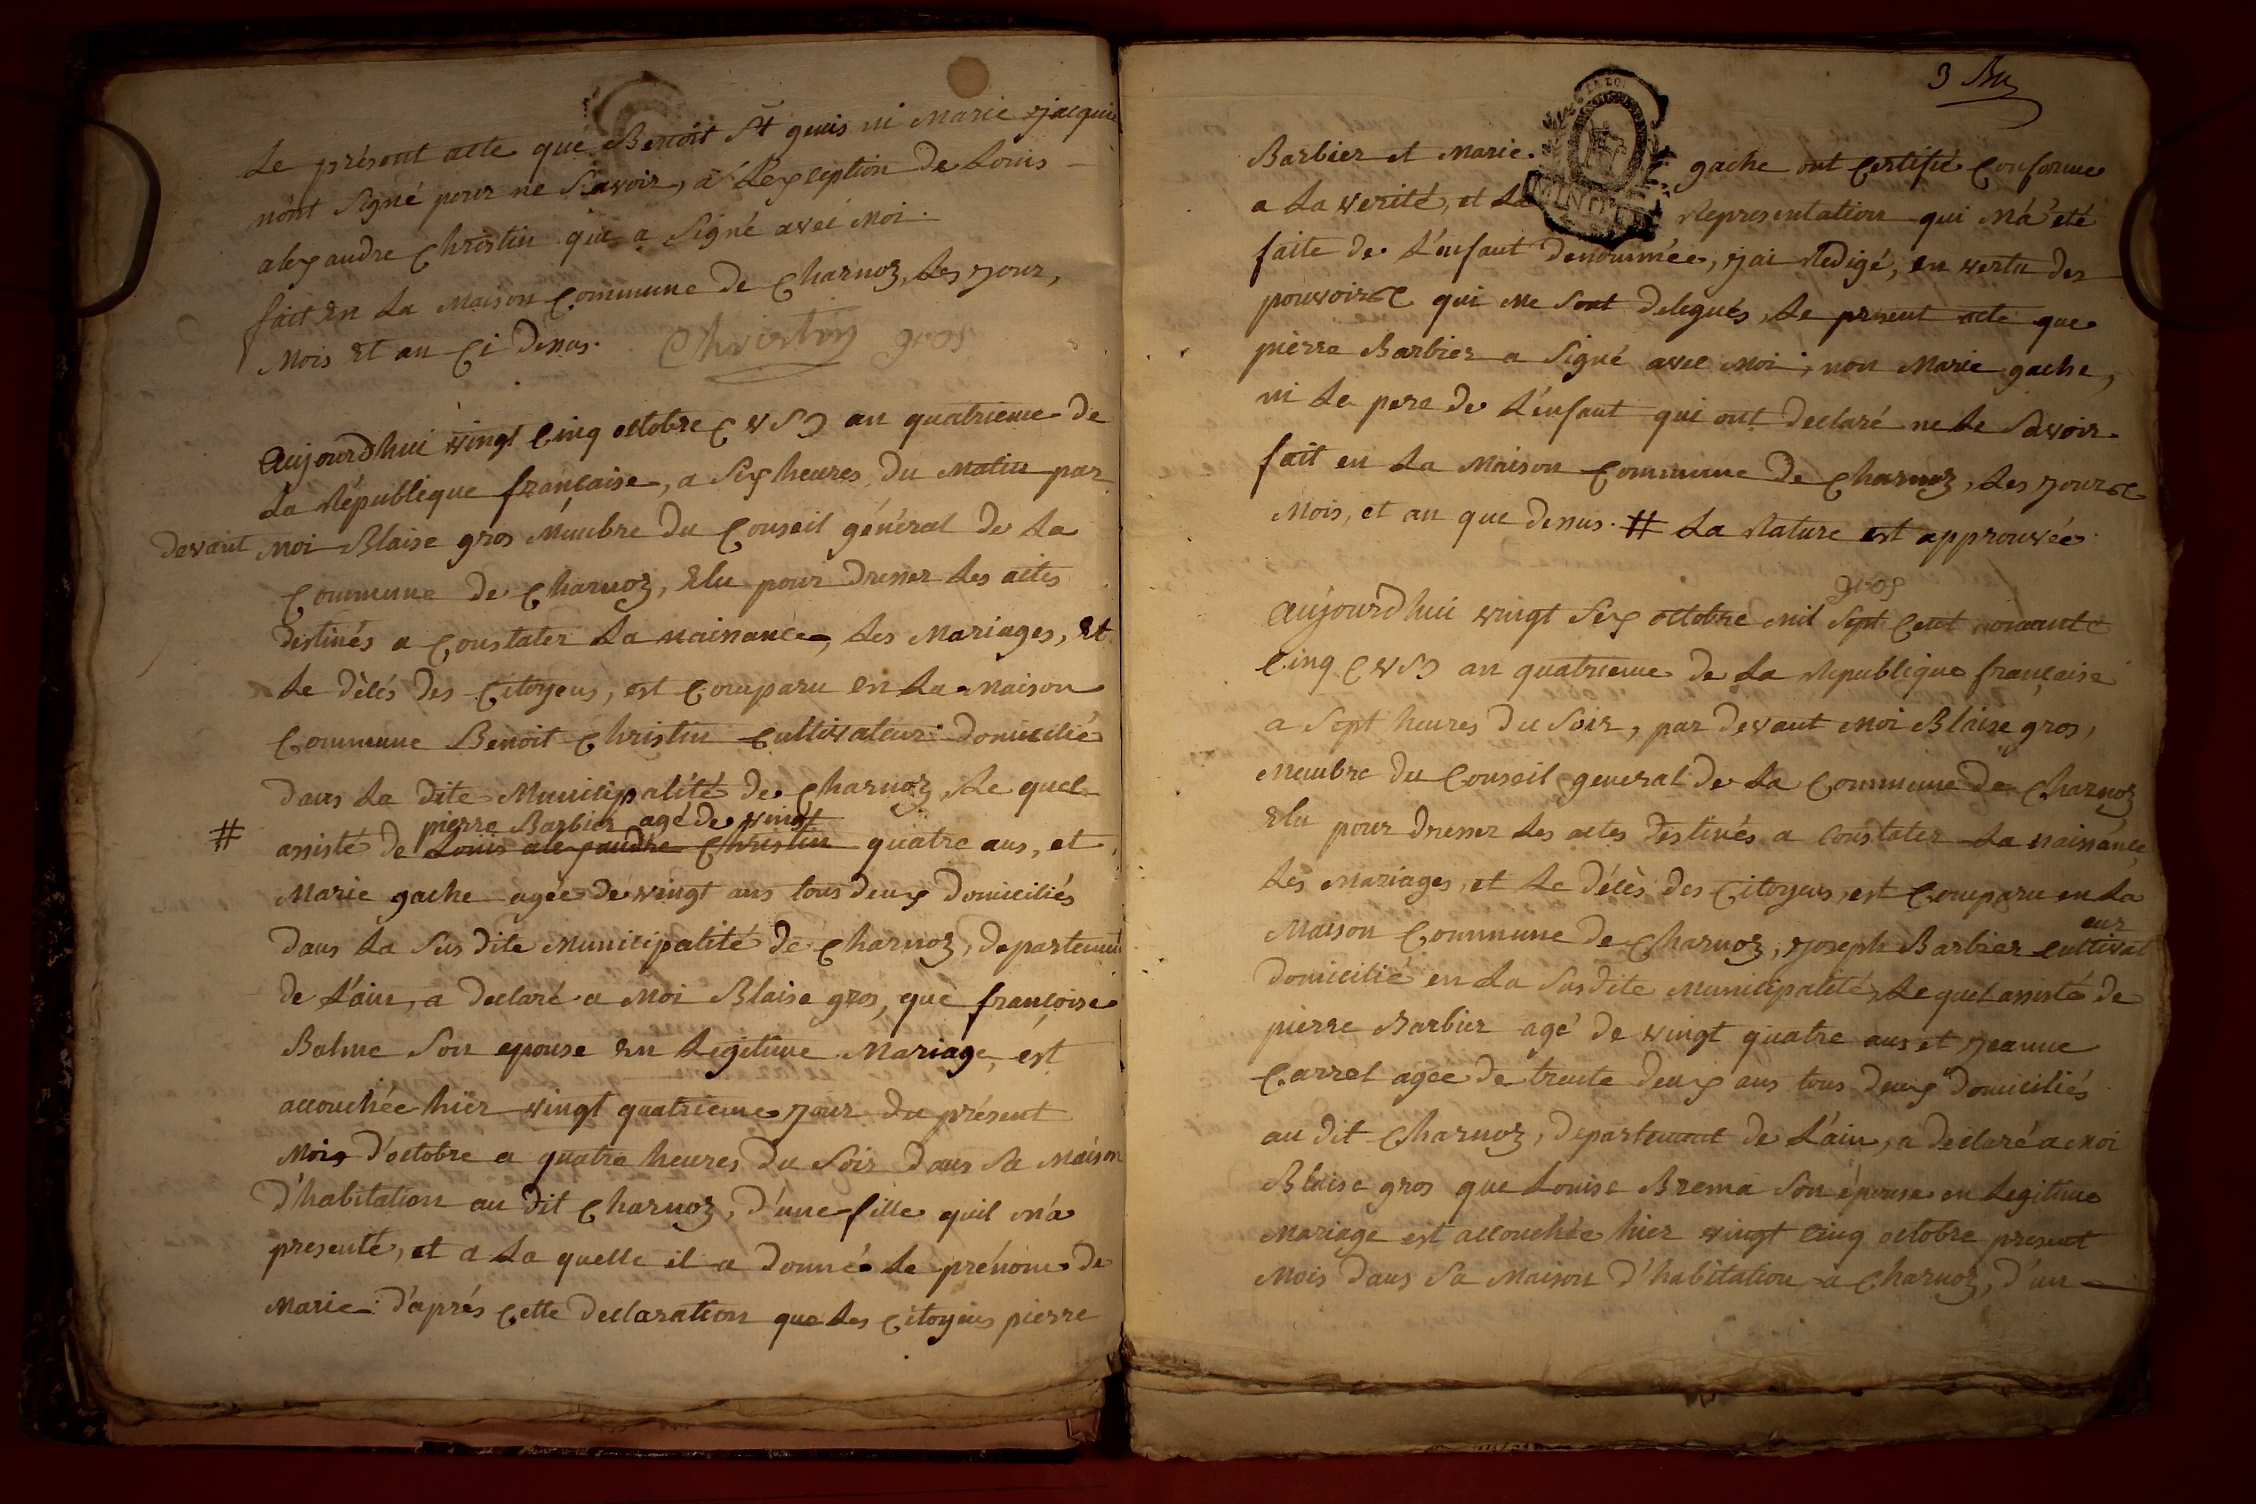 Le présent acte que Benoit St genis ni Marie Jacquin
n'ont Signé pour ne Savoir, a L'exception de Louis
alexandre Christin qui a Signé avec Moi.
fait En La Maison Commune de Charnoz, Les Jour,
Mois Et an Ci Denus. Christin gros
Aujourdhui vingt Cinq octobre (VS) an quatrieme de
La République française, a Six heures du Matin par
devant Moi Blaise gros Membre du Conseil général de La
Commune de Charnoz, Elu pour Dresser Les actes
Destinés a Constater La naissance, Les Mariages, Et
Le Décés Des Citoyens, est Comparu En La Maison
Commune Benoit Christin Cultivateur Domicilié
Dans La Dite Municipalité de Charnoz, Le quel
pierre Barbier agé de vingt
# assisté de Louis alexandre Christin quatre ans, et
Marie gache agée de vingt ans tous deux Domiciliés
Dans La Sus dite Municipalité de Charnoz, Departement
de L'ain, a declaré a Moi Blaise gros, que françoise
Balme Son epouse En Legitime Mariage, est
accouchée hier vingt quatrieme Jour du présent
Mois D'octobre a quatre heures du Soir Dans Sa Maison
D'habitation au dit Charnoz, D'une fille quil M'a
presenté, et a La quelle il a Donné Le prénom de
Marie. D'aprés Cette Declaration que Les Citoyens pierre
3
Barbier et Marie gache ont Certifié Conforme
a La verité, et La Representation qui M'a eté
faite de L'enfant Denommée, J'ai Redigé, en vertu des
pouvoirs qui Me Sont Delegués, Le present acte que
pierre Barbier a Signé avec Moi, non Marie gache,
ni Le pere de L'enfant qui ont Declaré ne Le Savoir.
fait en La Maison Commune de Charnoz, Les Jour
Mois, et an que Denus. # La Rature est approuvée.
gros
Aujourdhui vingt Six octobre Mil Sept Cent nonante
Cinq (VS) an quatrieme de La Republique française
a Sept heures Du Soir, par Devant Moi Blaise gros,
Membre du Conseil general de La Commune de Charnoz
Elu pour Dresser Les actes Destinés a Constater La naissance,
Les Mariages, et Le Décès des Citoyens, est Comparu en La
Maison Commune de Charnoz, Joseph Barbier Cultivateur
Domicilié en La Susdite Municipalité, Le quel assisté de
pierre Barbier agé de vingt quatre ans et Jeanne
Carrel agée de trente deux ans tous deux Domiciliés
au dit Charnoz, Departement de L'ain, a Declaré a Moi
Blaise gros que Louise Brema Son épouse en Legitime
Mariage est accouchée hier vingt Cinq octobre present
Mois Dans Sa Maison D'habitation a Charnoz, D'un